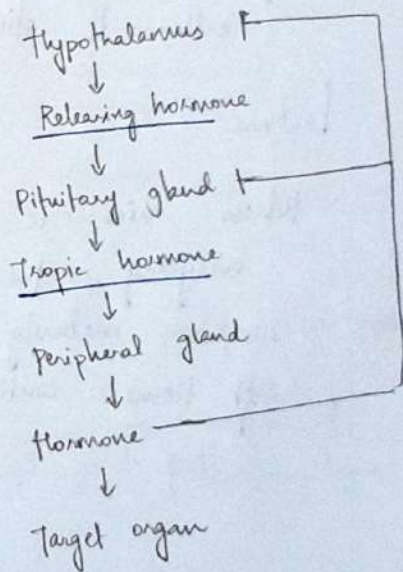 Hypothalamus
↓
Releasing hormone
↓
Pituitary gland
↓
Tropic hormone
↓
Peripheral gland
↓
Hormone
↓
Target organ